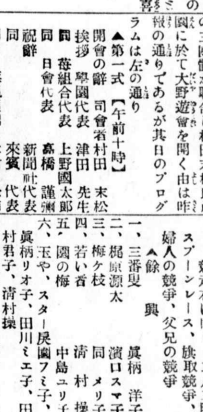 園に於て大野遊會を開く由は昨
報の通りであるが其日のプログ
ラムは左の通り
▲第一式【午前十時】
開會の辭 司會者村田 末松
挨拶 學園代表 津田 先生
同 苺組合代表 上野國太郎
同 日會代表 高橋 謹
祝辭 新聞社代表
同 來賓代表
スプーンレース、旗取競爭、
婦人の競爭、父兄の競爭
▲餘興
一、三番叟 眞柄 洋子
二、梶原源太 濱口スマ子
三、梅ケ枝 同 メリ子
四、若い者 清村 操
五、園の梅 中島ユリ子
六、玉や、スター
眞柄リオ子、田川ミエ子、田
村君子、清村操